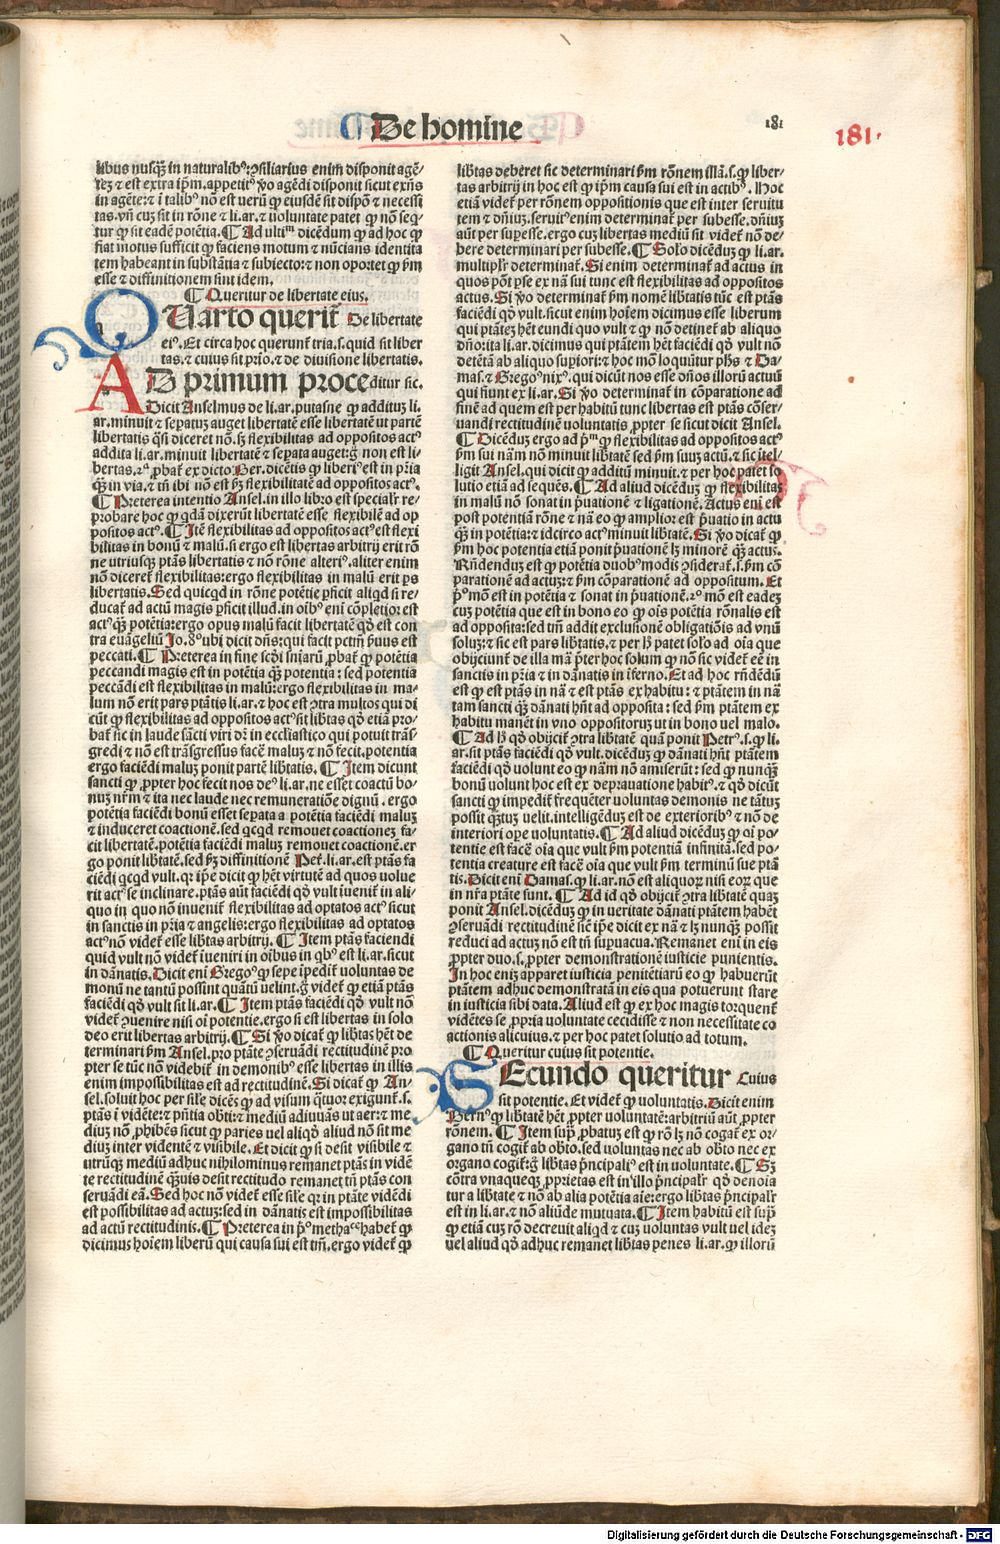 De homine
181
181.
libus nusq̃ in naturalibꝰ: ↄsiliarius enim disponit agẽ/
tez̃ ⁊ est extra ip̃m. appetitꝰ ꝟo agẽdi disponit sicut exñs
in agẽte: ⁊ ĩ talibꝰ nõ est uerũ ꝙ eiusdẽ sit dispõ ⁊ necessi
tas. vñ cuz sit in rõne ⁊ li. ar. ⁊ uoluntate patet ꝙ nõ seq̃
tur ꝙ sit eadẽ potẽtia. ¶ Ad ultiᵐ dicẽdum ꝙ ad hoc ꝙ
fiat motus sufficit ꝙ faciens motum ⁊ nũcians identita
tem habeant in substãtia ⁊ subiecto: ⁊ non oportet ꝙ ẜm
esse ⁊ diffinitionem sint idem.
¶ Queritur de libertate eius.
QUarto querit̃ De libertate
eiꝰ. Et circa hoc querunt̃ tria. s. quid sit liber
tas. ⁊ cuius sit p̃rio. ⁊ de diuisione libertatis.
AD primum proceditur sic.
Dicit Anselmus de li. ar. putasne ꝙ additũz li.
ar. minuit ⁊ sepatuz auget libertatẽ esse libertatẽ ut partẽ
libertatis q̃si diceret nõ. sꝫ flexibilitas ad oppositos actꝰ
addita li. ar. minuit libertatẽ ⁊ sepata auget: g̃ non est li/
bertas. 2ᵃ ꝓbat̃ ex dicto: Ber. dicẽtis ꝙ liberiꝰ est in p̃ria
q̃ꝫ in via. ⁊ tñ ibi nõ est ẜꝫ flexibilitatẽ ad oppositos actꝰ.
¶ Preterea intentio Ansel. in illo libro est specialr̃ re/
probare hoc ꝙ q̃dã dixerũt libertatẽ esse flexibilẽ ad op
positos actꝰ. ¶ Itẽ flexibilitas ad oppositos actꝰ est flexi
bilitas in bonũ ⁊ malũ. si ergo est libertas arbitrij erit rõ
ne utriusqꝫ ptãs libertatis ⁊ nõ rõne alteriꝰ. aliter enim
nõ diceret̃ flexibilitas: ergo flexibilitas in malũ erit ps
libertatis. Sed quicqd in rõne potẽtie ꝑficit aliqd si re/
ducat̃ ad actũ magis ꝑficit illud. in oĩbꝰ eni cõpletior est
actꝰ q̃ꝫ potẽtia: ergo opus malũ facit libertatẽ qđ est con
tra euãgeliũ Jo. 8ᵒ ubi dicit dñs: qui facit pctm̃ ẜuus est
peccati. ¶ Preterea in fine scđi sniarũ ꝓbat̃ ꝙ potẽtia
peccandi magis est in potẽtia q̃ꝫ potentia: sed potentia
peccãdi est flexibilitas in malũ: ergo flexibilitas in ma/
lum nõ erit pars ptãtis li. ar. ⁊ hoc est ↄtra multos qui di
cũt ꝙ flexibilitas ad oppositos actꝰ sit libtas qđ etiã pro/
bat̃ sic in laude sãcti viri dr̃ in eccliastico qui potuit trãs/
gredi ⁊ nõ est trãsgressus facẽ maluz ⁊ nõ fecit. potentia
ergo faciẽdi maluz ponit partẽ libtatis. ¶ Item dicunt
sancti ꝙ ꝓpter hoc fecit nos deꝰ li. ar. ne esset coactũ bo/
nuz nr̃m ⁊ ita nec laude nec remuneratiõe dignũ. ergo
potẽtia faciẽdi bonũ esset sepata a potẽtia faciẽdi maluz
⁊ induceret coactionẽ. sed qcqd remouet coactionez fa/
cit libertatẽ. potẽtia faciẽdi maluz remouet coactionẽ. er
go ponit libtatẽ. sed ẜꝫ diffinitionẽ Pet̃. li. ar. est ptãs fa
ciẽdi qcqd vult. qꝛ ip̃e dicit ꝙ hẽt virtutẽ ad quos uolue
rit actꝰ se inclinare. ptãs aũt faciẽdi qđ vult iuenit̃ in ali/
quo in quo nõ inuenit̃ flexibilitas ad optatos actꝰ sicut
in sanctis in p̃ria ⁊ angelis: ergo flexibilitas ad optatos
actꝰ nõ videt̃ esse libtas arbitrij. ¶ Item ptãs faciendi
quid vult nõ videt̃ iueniri in oĩbus in qbꝰ est li. ar. sicut
in dãnatis. Dicit eni Gregoꝰ ꝙ sepe ĩpedit̃ uoluntas de
monũ ne tantũ possint quãtũ uelint. g̃ videt̃ ꝙ etiã ptãs
faciẽdi qđ vult sit li. ar. ¶ Item ptãs faciẽdi qđ vult nõ
videt̃ ↄuenire nisi oĩ potentie. ergo si est libertas in solo
deo erit libertas arbitrij. ¶ Si ꝟo dicat̃ ꝙ libtas hẽt de
terminari ẜm Ansel. pro ptãte ↄseruãdi rectitudinẽ pro
pter se tũc nõ videbit̃ in demonibꝰ esse libertas in illis
enim impossibilitas est ad rectitudinẽ. Si dicat̃ ꝙ An/
sel. soluit hoc per sile dicẽs ꝙ ad visum q̃tuor exigunt̃. s.
ptãs ĩ vidẽte: ⁊ pñtia obti: ⁊ mediũ adiuuãs ut aer: ⁊ me
diuz nõ ꝓhibẽs sicut ꝙ paries uel aliqđ aliud nõ sit me
diuz inter videntẽ ⁊ visibile. Et dicit ꝙ si desit visibile ⁊
utrũqꝫ mediũ adhuc nihilominus remanet ptãs in vidẽ
te rectitudinẽ q̃uis desit rectitudo remanet tñ ptãs con
seruãdi eã. Sed hoc nõ videt̃ esse sile qꝛ in ptãte vidẽdi
est possibilitas ad actuz: sed in dãnatis est impossibilitas
ad actũ rectitudinis. ¶ Preterea in pᵒ methaᶜᵉ habet̃ ꝙ
dicimus hoĩem liberũ qui causa sui est tm̃. ergo videt̃ ꝙ
libtas deberet sic determinari ẜm rõnem illã. s. ꝙ liber/
tas arbitrij in hoc est ꝙ ip̃m causa sui est in actibꝰ. Hoc
etiã videt̃ per rõnem oppositionis que est inter seruitu
tem ⁊ dñiuz. seruiꝰ enim determinat̃ per subesse. dñiuz
aũt per supesse. ergo cuz libertas mediũ sit videt̃ nõ de/
bere determinari per subesse. ¶ Solo dicẽduz ꝙ li. ar.
multiplr̃ determinat̃. Si enim determinat̃ ad actus in
quos põt ꝑse ex nã sui tunc est flexibilitas ad oppositos
actus. Si ꝟo determinat̃ ẜm nomẽ libtatis tũc est ptãs
faciẽdi qđ vult. sicut enim hoĩem dicimus esse liberum
qui ptãtez hẽt eundi quo vult ⁊ ꝙ nõ detinet̃ ab aliquo
dño: ita li. ar. dicimus qui ptãtem hẽt faciẽdi qđ vult nõ
detẽtã ab aliquo supiori: ⁊ hoc mõ loquũtur phs̃ ⁊ Da/
mas. ⁊ Gregoꝰ nixꝰ. qui dicũt nos esse dños illorũ actuũ
qui fiunt ex li. ar. Si ꝟo determinat̃ in cõparatione ad
finẽ ad quem est per habitũ tunc libertas est ptãs cõser/
uandi rectitudinẽ uoluntatis ꝓpter se sicut dicit Ansel.
¶ Dicẽduz ergo ad pᵐ ꝙ flexibilitas ad oppositos actꝰ
ẜm sui nãm nõ minuit libtatẽ sed ẜm suuz actũ. ⁊ sic itel/
ligit Ansel. qui dicit ꝙ additũ minuit. ⁊ per hoc patet so
lutio etiã ad sequẽs. ¶ Ad aliud dicẽduz ꝙ flexibilitas
in malũ nõ sonat in p̃uationẽ ⁊ ligationẽ. Actus eni est
post potentiã rõne ⁊ nã eo ꝙ amplior est p̃uatio in actu
q̃ꝫ in potẽtia: ⁊ idcirco actꝰ minuit libtatẽ. Si ꝟo dicat̃ ꝙ
ẜm hoc potentia etiã ponit p̃uationẽ lꝫ minorẽ q̃ꝫ actuz.
Rñdenduz est ꝙ potẽtia duobꝰ modis ↄsiderat̃. s. ẜm cõ
parationẽ ad actuz: ⁊ ẜm cõparationẽ ad oppositum. Et
pᵒ mõ est in potẽtia ⁊ sonat in p̃uationẽ. 2ᵒ mõ est eadez
cuz potẽtia que est in bono eo ꝙ oĩs potẽtia rõnalis est
ad opposita: sed tm̃ addit exclusionẽ obligatiõis ad vnũ
soluz: ⁊ sic est pars libtatis. ⁊ per hꝫ patet solo ad oĩa que
obijciunt̃ de illa mã p̃ter hoc solum ꝙ nõ sic videt̃ eẽ in
sanctis in p̃ria ⁊ in dãnatis in iferno. Et ad hoc rñdẽdũ
est ꝙ est ptãs in nã ⁊ est ptãs ex habitu: ⁊ ptãtem in nã
tam sancti q̃ꝫ dãnati hñt ad opposita: sed ẜm ptãtem ex
habitu manẽt in vno oppositoruz ut in bono uel malo.
¶ Ad hꝫ qđ obijcit̃ ↄtra libtatẽ quã ponit Petrꝰ. s. ꝙ li.
ar. sit ptãs faciẽdi qđ vult. dicẽduz ꝙ dãnati hñt ptãtem
faciẽdi qđ volunt eo ꝙ nãm nõ amiserũt: sed ꝙ nunq̃ꝫ
bonũ uolunt hoc est ex deprauatione habitꝰ. ⁊ qđ dicũt
sancti ꝙ impedit̃ frequẽter uoluntas demonis ne tãtuz
possit q̃tuz uelit. intelligẽduz est de exterioribꝰ ⁊ nõ de
interiori ope uoluntatis. ¶ Ad aliud dicẽduz ꝙ oĩ po/
tentie est facẽ oĩa que vult ẜm potentiã infinitã. sed po/
tentia creature est facẽ oĩa que vult ẜm terminũ sue ptã
tis. Dicit eni Damas. ꝙ li. ar. nõ est aliquoꝝ nisi eoꝝ que
in nr̃a ptãte sunt. ¶ Ad id qđ obijcit̃ ↄtra libtatẽ quaz
ponit Ansel. dicẽduz ꝙ in ueritate dãnati ptãtem habẽt
ↄseruãdi rectitudinẽ sicẽ ip̃e dicit ex nã ⁊ lꝫ nunquaz possit
reduci ad actuz nõ est tñ supuacua. Remanet eni in eis
ꝓpter duo. s. ꝓpter demonstrationẽ iusticie punientis.
In hoc eniz apparet iusticia penitẽtiarũ eo ꝙ habuerũt
ptãtem adhuc demonstratã in eis qua potuerunt stare
in iusticia sibi data. Aliud est ꝙ ex hoc magis torquent̃
vidẽtes se ꝓpria uoluntate cecidisse ⁊ non necessitate co
actionis alicuius. ⁊ per hoc patet solutio ad totum.
¶ Queritur cuius sit potentie.
SEcundo queritur Cuius
sit potentie. Et videt̃ ꝙ voluntatis. Dicit enim
Bernꝰ ꝙ libtatẽ hẽt ꝓpter uoluntatẽ: arbitriũ aũt ꝓpter
rõnem. ¶ Item sup̃ ꝓbatuz est ꝙ rõ lꝫ nõ cogat̃ ex or/
gano tñ cogit̃ ab obto. sed uoluntas nec ab obto nec ex
organo cogit̃: g̃ libtas p̃ncipaliꝰ est in uoluntate. ¶ Sꝫ
cõtra vnaqueqꝫ ꝓprietas est in illo p̃ncipalr̃ qđ denoĩa
tur a libtate ⁊ nõ ab alia potẽtia aĩe: ergo libtas p̃ncipalr̃
est in li. ar. ⁊ nõ aliũde mutuata. ¶ Item habitũ est sup̃
ꝙ etiã cuz rõ decreuit aliqd ⁊ cuz uoluntas vult uel idez
uel aliud qđ adhuc remanet libtas penes li. ar. ꝙ illorũ
Digitalisierung gefördert durch die Deutsche Forschungsgemeinschaft - DFG